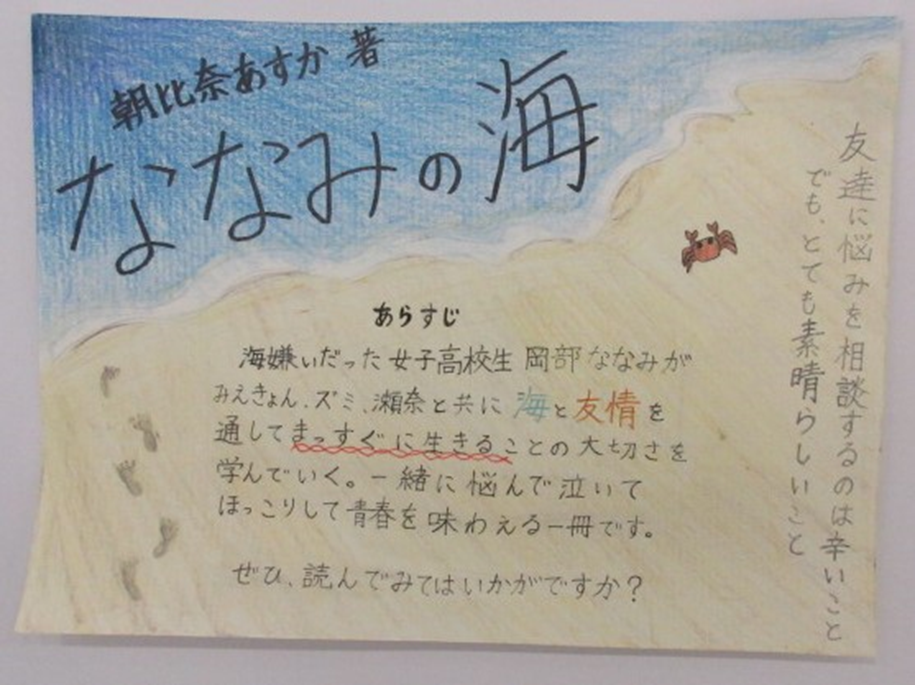 朝比奈あすか 著
ななみの海
友達に悩みを相談するのは辛いこと
でも、とても素晴らしいこと
あらすじ
海嫌いだった女子高校生 岡部ななみが
みえきょん、ズミ、瀬奈と共に 海と友情を
通してまっすぐに生きることの大切さを
学んでいく。一緒に悩んで泣いて
ほっこりして青春を味わえる一冊です。
ぜひ、読んでみてはいかがですか？